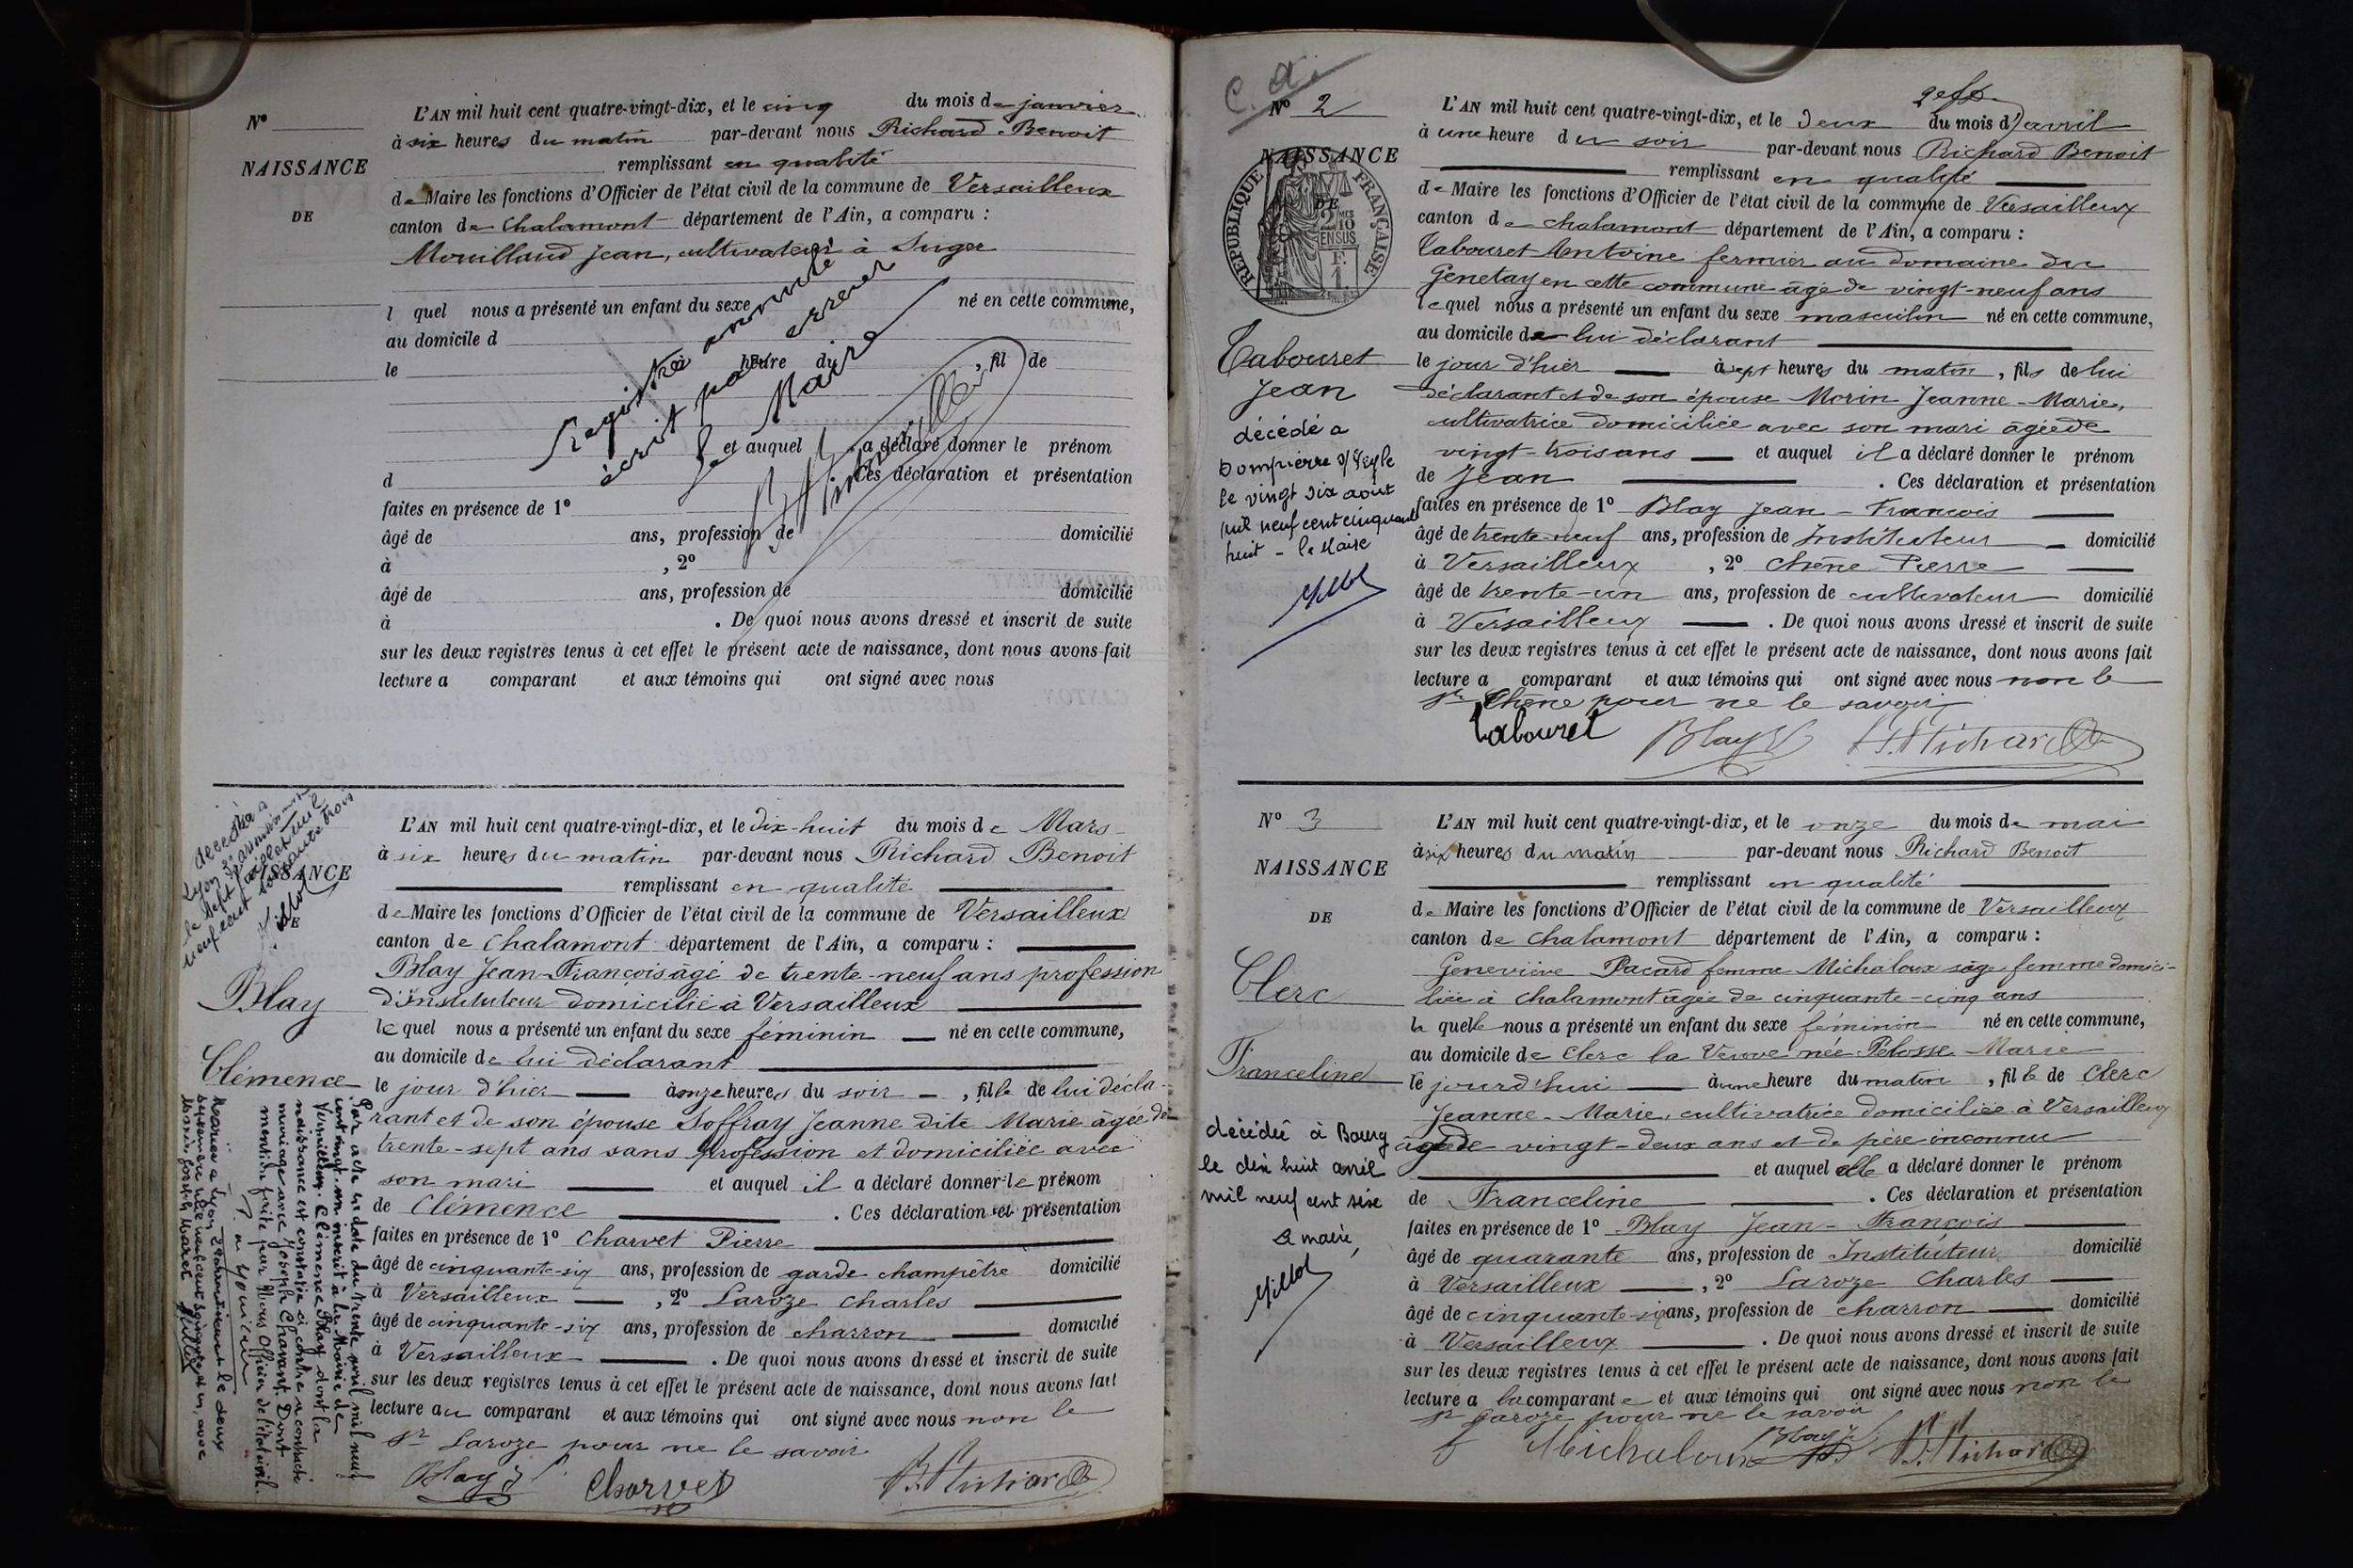 N°
NAISSANCE
DE
L'AN mil huit cent quatre-vingt-dix, et le cinq du mois de janvier
à six heures du matin par-devant nous Richard Benoit
remplissant en qualité
de Maire les fonctions d'Officier de l'état civil de la commune de Versailleux
canton de Chalamont département de l'Ain, a comparu :
Mouilland Jean, cultivateur à
l quel nous a présenté un enfant du sexe né en cette commune,
au domicile d
le heure du , fil de
et auquel a déclaré donner le prénom
d Ces déclaration et présentation
faites en présence de 1°
âgé de ans, profession de domicilié
à , 2°
âgé de ans, profession de domicilié
à . De quoi nous avons dressé et inscrit de suite
sur les deux registres tenus à cet effet le présent acte de naissance, dont nous avons fait
lecture a comparant et aux témoins qui ont signé avec nous
annulé
écrit par erreur
Le Maire
décédée à
Lyon 3e arr
le sept juillet mil
neuf cent soixante trois
Millot
SSANCE
DE
Blay
Clémence
L'AN mil huit cent quatre-vingt-dix, et le dix-huit du mois de Mars
à six heures du matin par-devant nous Richard Benoit
remplissant en qualité
de Maire les fonctions d'Officier de l'état civil de la commune de Versailleux
canton de Chalamont département de l'Ain, a comparu :
Blay Jean-François âgé de trente-neuf ans profession
d'instituteur domicilié à Versailleux
lequel nous a présenté un enfant du sexe féminin né en cette commune,
au domicile de lui déclarant
le jour d'hier à onze heures du soir , fille de lui décla-
rant et de son épouse Soffray Jeanne dite Marie âgée de
trente-sept ans sans profession et domiciliée avec
son mari et auquel il a déclaré donner le prénom
de Clémence . Ces déclaration et présentation
faites en présence de 1° Charvet Pierre
âgé de cinquante-six ans, profession de garde champêtre domicilié
à Versailleux , 2° Laroze Charles
âgé de cinquante-six ans, profession de charron domicilié
à Versailleux . De quoi nous avons dressé et inscrit de suite
sur les deux registres tenus à cet effet le présent acte de naissance, dont nous avons fait
lecture au comparant et aux témoins qui ont signé avec nous non le
sr Laroze pour ne le savoir
Blay Charvet B. Richard
Par acte en date du trente avril mil neuf
cent vingt-un inscrit à la Mairie de
Versailleux Clémence Blay dont la
naissance est constatée ci-contre a contracté
mariage avec Joseph Chavant. Dont
mention faite par Nous Officier de l'état civil.
Mariée à Lyon le deux
septembre mil neuf cent cinquante un, avec
Maret Millot
C. A.
N° 2
NAISSANCE
DE
RÉPUBLIQUE FRANÇAISE
2 MES 10
EN SUS
F.
1
Tabouret
Jean
décédé a
Dompierre s/Veyle
le vingt six août
mil neuf cent cinquante
huit - le Maire
Millot
2e exp.
L'AN mil huit cent quatre-vingt-dix, et le deux du mois d'avril
à une heure du soir par-devant nous Richard Benoit
remplissant en qualité
de Maire les fonctions d'Officier de l'état civil de la commune de Versailleux
canton de Chalamont département de l'Ain, a comparu :
Tabouret Antoine fermier au domaine du
Genetay en cette commune âgé de vingt-neuf ans
lequel nous a présenté un enfant du sexe masculin né en cette commune,
au domicile de lui déclarant
le jour d'hier à sept heures du matin , fils de lui
déclarant et de son épouse Morin Jeanne-Marie,
cultivatrice domiciliée avec son mari âgée de
vingt-trois ans et auquel il a déclaré donner le prénom
de Jean . Ces déclaration et présentation
faites en présence de 1° Blay Jean-François
âgé de trente-neuf ans, profession de Instituteur domicilié
à Versailleux , 2° Chêne Pierre
âgé de trente-un ans, profession de cultivateur domicilié
à Versailleux . De quoi nous avons dressé et inscrit de suite
sur les deux registres tenus à cet effet le présent acte de naissance, dont nous avons fait
lecture a comparant et aux témoins qui ont signé avec nous non le
sr Chêne pour ne le savoir
Tabouret Blay B. Richard
N° 3
NAISSANCE
DE
Clerc
Franceline
décédée à Bourg
le dix huit avril
mil neuf cent seize
Le maire,
Millot
L'AN mil huit cent quatre-vingt-dix, et le onze du mois de mai
à six heures du matin par-devant nous Richard Benoit
remplissant en qualité
de Maire les fonctions d'Officier de l'état civil de la commune de Versailleux
canton de Chalamont département de l'Ain, a comparu :
Geneviève Pacard femme Michaloux sage-femme domici-
liée à Chalamont âgée de cinquante-cinq ans
laquelle nous a présenté un enfant du sexe féminin né en cette commune,
au domicile de Clerc la Veuve née Pelosse Marie
le jourd'hui à une heure du matin , fille de Clerc
Jeanne-Marie, cultivatrice domiciliée à Versailleux
âgée de vingt-deux ans et de père inconnu
et auquel elle a déclaré donner le prénom
de Franceline . Ces déclaration et présentation
faites en présence de 1° Blay Jean-François
âgé de quarante ans, profession de Instituteur domicilié
à Versailleux , 2° Laroze Charles
âgé de cinquante-six ans, profession de charron domicilié
à Versailleux . De quoi nous avons dressé et inscrit de suite
sur les deux registres tenus à cet effet le présent acte de naissance, dont nous avons fait
lecture a la comparante et aux témoins qui ont signé avec nous non le
sr Laroze pour ne le savoir
f Michaloux Blay B. Richard